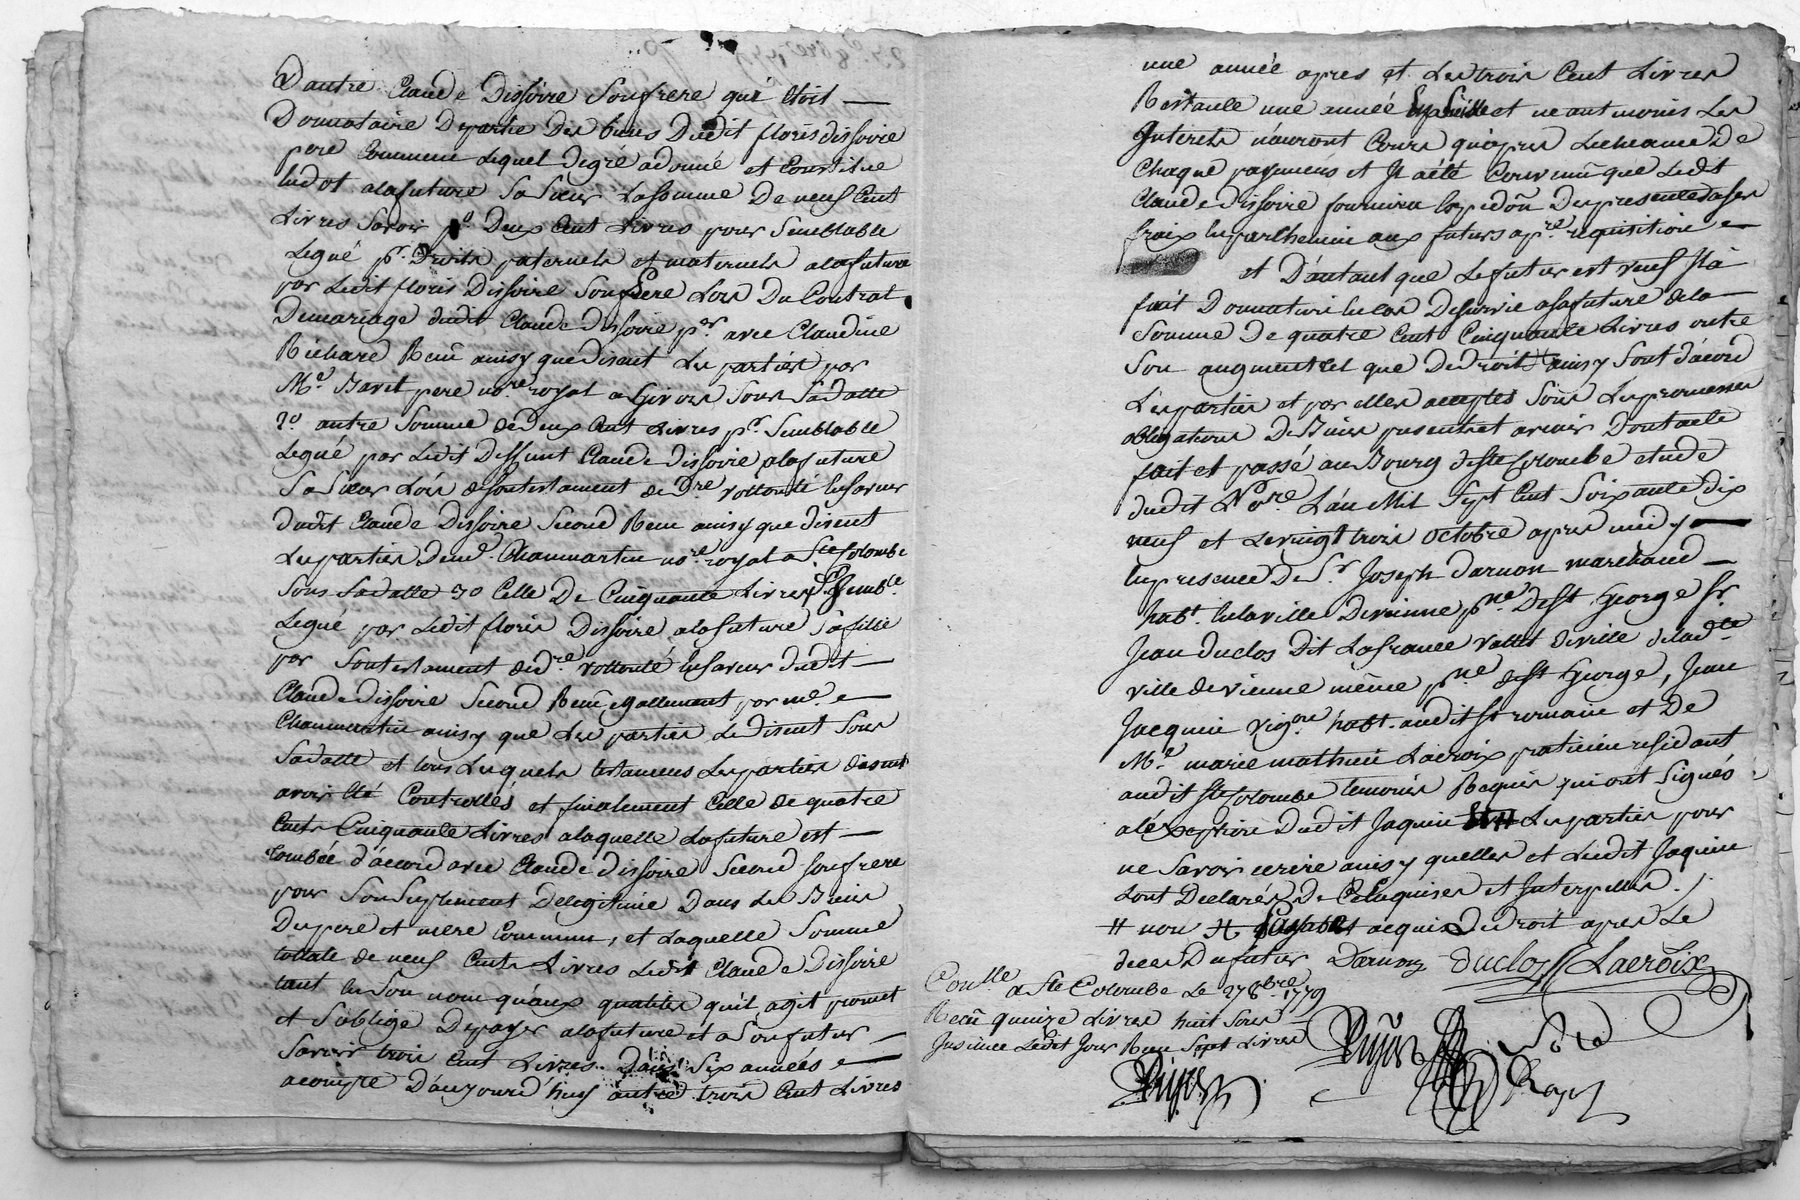 D'autre Claude Dissoire Son frere qui Etoit —
Donnataire Departie Des biens Dudit floris dissoire
pere Commun Lequel degré a donné et Constitué
En dot a la future Sa Sœur La Somme De neuf Cent
Livres Savoir po Deux Cent Livres pour Semblable
Legué pr. Droits paternels et maternels a la future
par Ledit floris Dissoire Son pere Lors Du Contrat
De mariage dudit Claude Dissoire pr avec Claudine
Richard Recu ainsy que disent Les parties par
Me. Bavet pere nore royal a Givors Sous Sa datte
2o autre Somme de Deux Cent Livres pr. Semblable
Legué par Ledit Deffunt Claude dissoire a la future
Sa Sœur Lors de Son testament de Dre vollonté En faveur
dudit Claude Dissoire Second Recu ainsy que disent
Les parties De me. Chaumartin nore royal a Ste Colombe
Sous Sa datte 3o Celle De Cinquante Livres Semble
Legué par Ledit floris Dissoire a la future Sa fille
par Son testament de dre vollonté En faveur dudit —
Claude dissoire Second Recu egallement par me.
Chaumartin ainsy que Les parties Le disent Sous
Sa datte et tous Lesquels testamens Les parties disent
avoir Eté Controllés et finalement Celle de quatre
Cents Cinquante Livres a laquelle La future est —
tombée d'accord avec Claude dissoire Second Son frere
pour Son Suplement De legitime Dans Les Biens
Du pere et mere Communs, et Laquelle Somme
totalle de neuf Cents Livres Ledit Claude Dissoire
tant En Son nom qu'aux qualités qu'il agit promet
et S'oblige De payer a la future et a Son futur —
Savoir trois Cent Livres Dans Six années
a compte D'aujourd'huy autre trois Cent Livres
une année apres et Les trois Cent Livres
Restante une année Ensuitte et neantmoins Les
Interets n'auront Cours qu'apres L'echeance De
Chaque payements et Il a été Convenu que Ledt
Claude dissoire fournira Expedon Des presentes a Ses
frais En parchemin aux futurs a pre requisition
et D'autant que Le futur est veuf Il a
fait Donnation En Cas De Survie a Sa future de la —
Somme De quatre Cent Cinquante Livres outre
Son augment tel que De Droit # ainsy Sont d'acord
Les parties et par elles acceptés Sous Les promesses
obligations De Biens presents et avenir Dont acte
fait et passé au Bourg de Ste Colombe etude
dudit Nore L'an Mil Sept Cent Soixante dix
neuf et Le vingt trois octobre apres midy —
En presence De Sr Joseph Darnon marchand —
habt. En la ville De vienne pse De St George Sr.
Jean Duclos Dit La france vallet de ville de la dte
ville de vienne même pse de St George, Jean
Jacquin vigon habt. audit St romain et De
Me marie mathieu Lacroix praticien residant
audit Ste Colombe temoins Requis qui ont Signés
a l'exeption Dudit Jaquin Les parties pour
ne Savoir ecrire ainsy quelles et Ledit Jaquin
Lont Declarés De Ce Enquises et Interpelles ./
# non # acquis De Droit apres Le
deces Du futur Darnon Duclos Lacroix
Conlle a Ste Colombe Le 27 8bre 1779
Recu quinze Livres huit Sous
Insinué Ledit Jour Recu Sept Livres